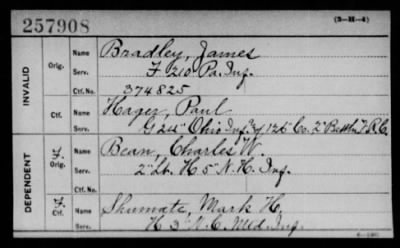 257908
(3-H-4)
INVALID
Orig.
Name Bradley, James
Serv. F 210 Pa. Inf.
Ctf. No. 374825
Ctf.
Name Hager, Paul
Serv. G 24" Ohio Inf. & 125 Co. 2" Battln V.R.C.
DEPENDENT
F. Orig.
Name Bean, Charles W.
Serv. 2" Lt. H 5" N.H. Inf.
Ctf. No.
F. Ctf.
Name Shumate, Mark H.
Serv. H 3" N.C. Mtd. Inf.